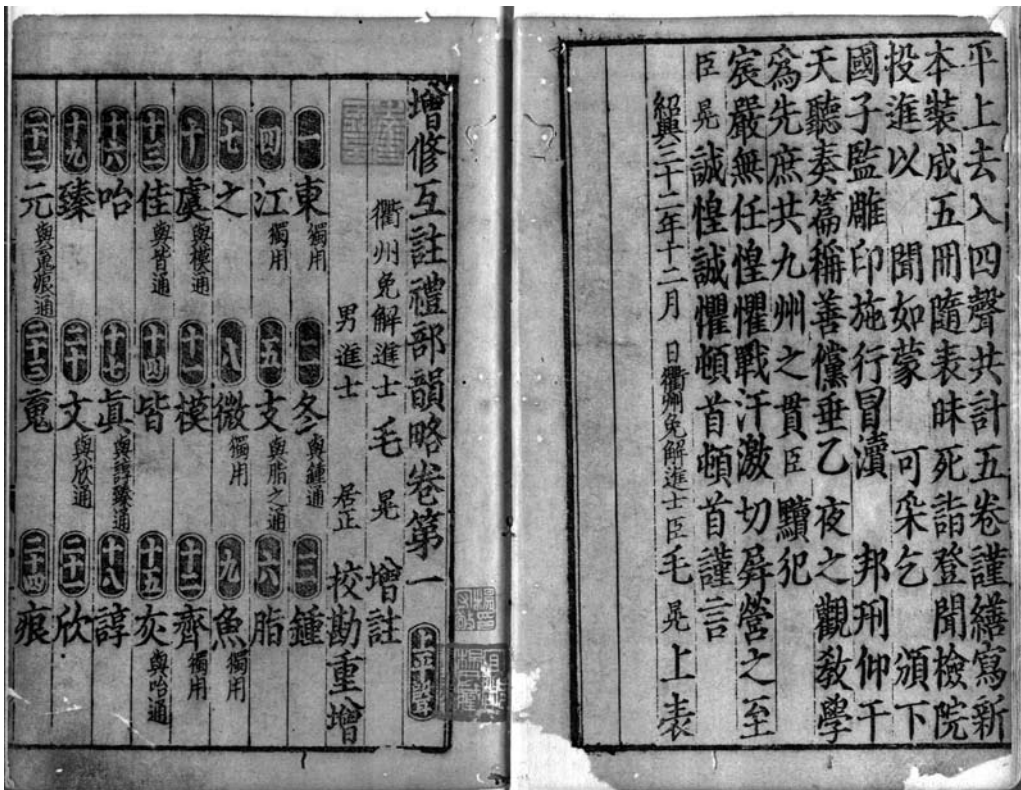 平上去入四聲共計五卷謹繕寫新
本裝成五冊隨表昧死詣登聞檢院
投進以　聞如蒙　可采乞　頒下
國子監雕印施行冒瀆　邦刑仰干
天聽奏篇稱善儻垂乙夜之觀敎學
爲先庶共九州之貫臣　黷犯
宸嚴無任惶懼戰汗激切屏營之至
臣晃誠惶誠懼頓首頓首謹言
紹興三十二年十二月　日衢州免解進士臣毛　晃　上表
增修互註禮部韻略卷第一　上平聲
衢州免解進士　毛　晃　增註
男進士　居正　挍勘重增
一東獨用　二冬與鍾通　三鍾
四江獨用　五支與脂之通　六脂
七之　八微獨用　九魚獨用
十虞與模通　十一模　十二齊獨用
十三佳與皆通　十四皆　十五灰與咍通
十六咍　十七眞與諄臻通　十八諄
十九臻　二十文與欣通　二十一欣
二十二元與䰟痕通　二十三䰟　二十四痕